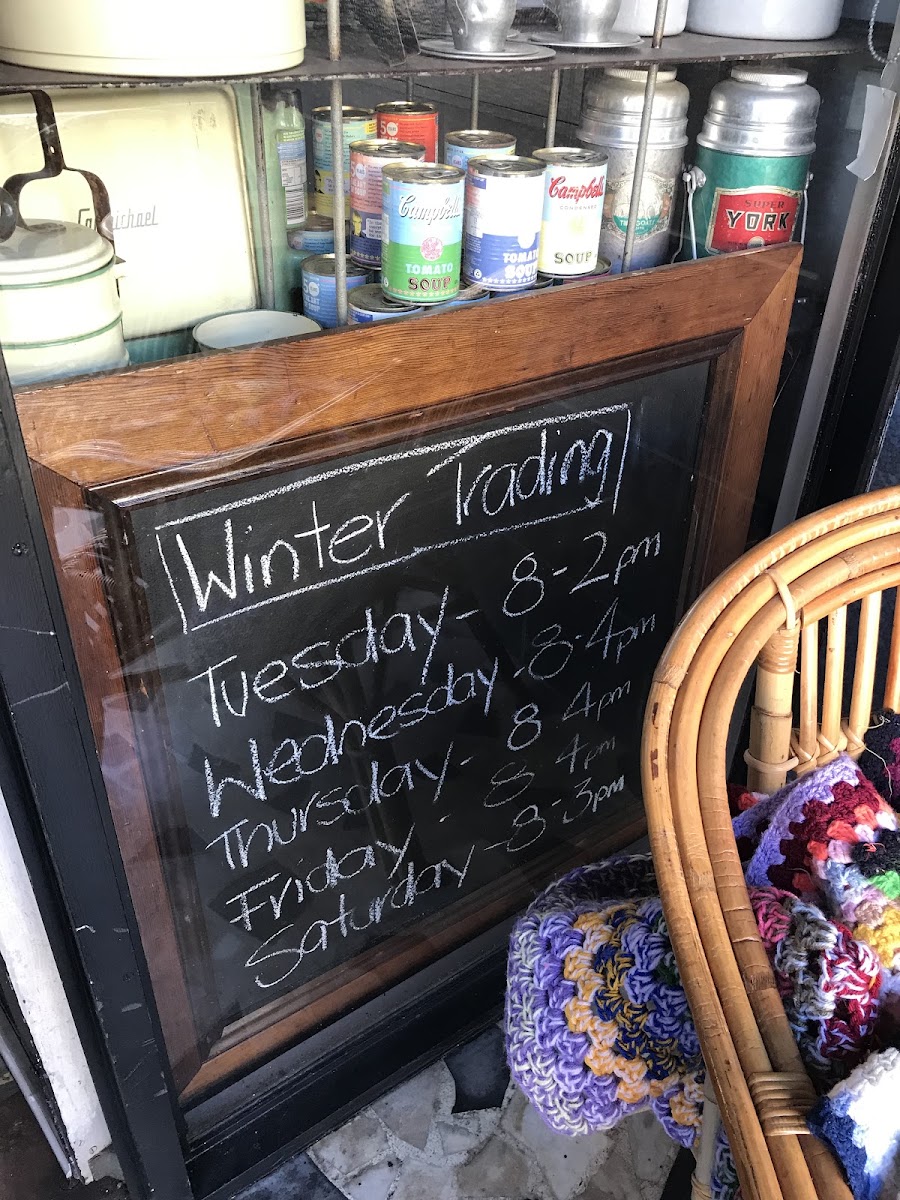 Campbell's
TOMATO
SOUP
TOMATO
SOUP
Campbell's
CONDENSED
SOUP
SUPER
YORK
Winter Trading
Tuesday - 8-2pm
Wednesday - 8-4pm
Thursday - 8 4pm
Friday - 8 4pm
Saturday - 8-3pm